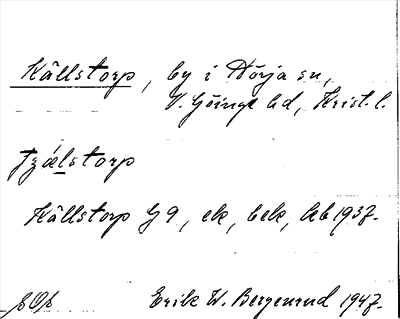 Källstorp, by i Nörja sn,
V. Göinge hd, Krist. l.
tzǽlstorp
Källstorp G 9, ek, bek, leb 1937.
Erik W. Bergenrud 1947.